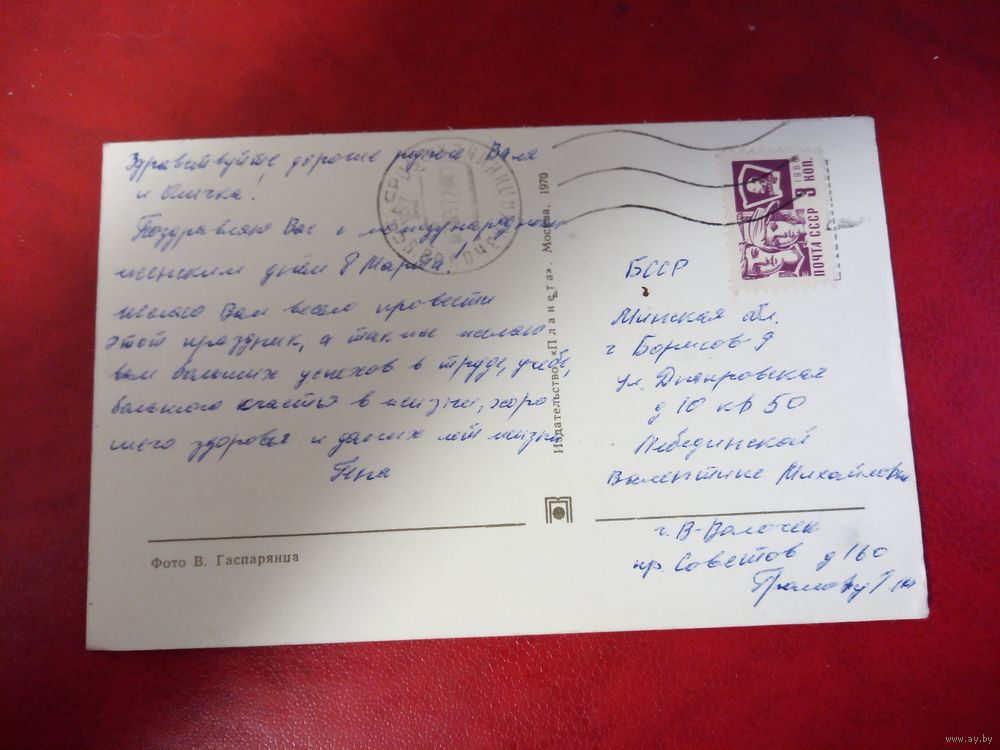 Здравствуйте, дорогие родные Валя
и Олечка!
Поздравляю Вас с международным
женским днём 8 Марта!
желаю Вам весело провести
этот праздник, а также желаю
вам больших успехов в труде, учёбе,
большого счастья в жизни, хоро
шего здоровья и долгих лет жизни
Гена
Фото В. Гаспарянца
Издательство «Планета». Москва. 1970
ПОЧТА СССР 3 КОП.
БССР
Минская обл.
г Борисов-9
ул. Днепровская
д 10 кв 50
Лебединской
Валентине Михайловне
г. В-Волочек
пр Советов д 160
www.ay.by